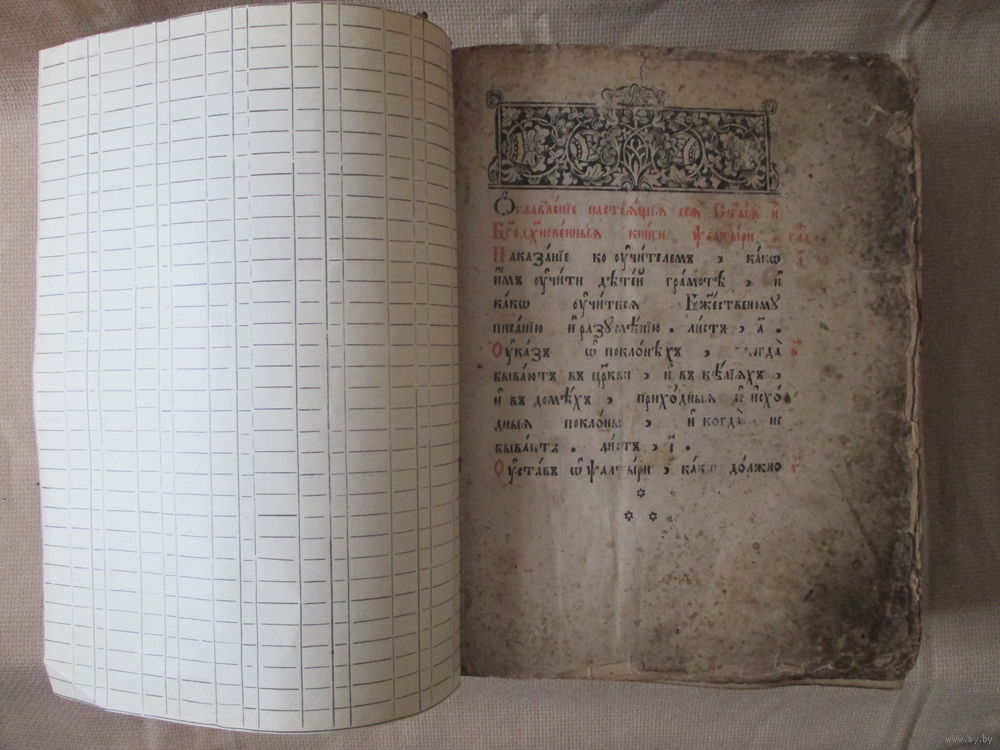 Ѻглавле́нїе настоѧ́щїѧ сеѧ̀ Ст҃ы́ѧ и҆
Бг҃одꙋхнове́нныѧ кни́ги ѱалты́ри гла
Наказа́нїе ко ᲂу҆чи́телемъ , ка́кѡ
и҆̀мъ ᲂу҆чи́ти дѣте́й гра́мотѣ , и҆
ка́кѡ ᲂу҆чи́тисѧ Бж҃е́ственомꙋ
писа́нїю и҆ разꙋмѣ́нїю . ли́стъ , а҃ .
Оу҆ка́зъ ѡ҆ покло́нѣхъ , когда̀ в҃
быва́ютъ въ цр҃кви , и҆ въ ке́лїѧхъ ,
и҆ въ домѣ́хъ , прихо́дныѧ и҆ и҆схо́
дныѧ покло́ны , и҆ когда̀ не
быва́ютъ . ли́стъ , і҃ .
Оу҆ста́въ ѡ҆ ѱалты́ри , ка́кѡ до́лжно г҃
www.ay.by